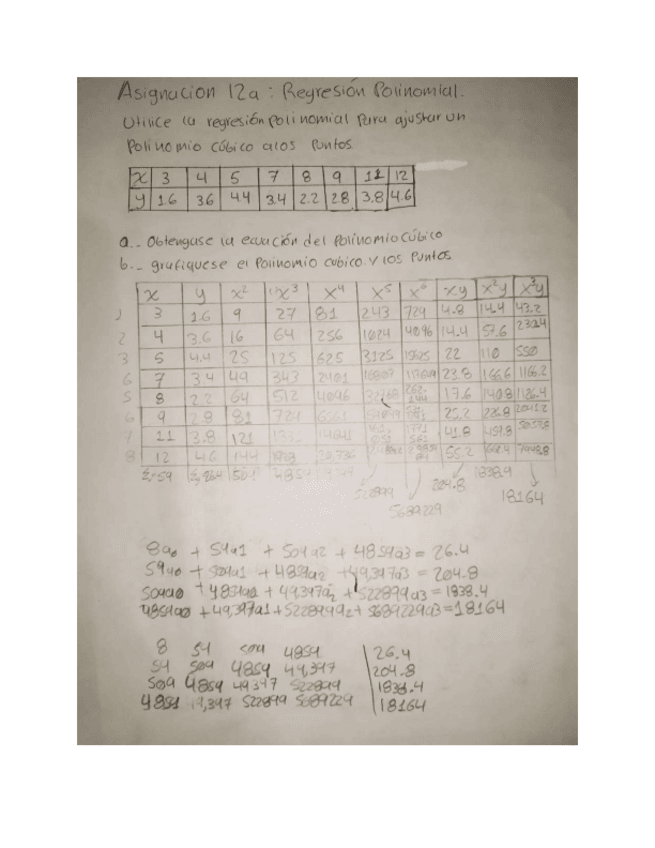 Asignacion 12a: Regresión Polinomial.
Utilice la regresión polinomial para ajustar un
Polinomio cúbico a los Puntos.
x 3 4 5 7 8 9 11 12
y 1.6 3.6 4.4 3.4 2.2 2.8 3.8 4.6
a.- Obtengase la ecuación del Polinomio Cúbico
b.- grafiquese el Polinomio cubico y los Puntos
x y x² x³ x⁴ x⁵ x⁶ xy x²y x³y
1 3 1.6 9 27 81 243 729 4.8 14.4 43.2
2 4 3.6 16 64 256 1024 4096 14.4 57.6 230.4
3 5 4.4 25 125 625 3125 15625 22 110 550
6 7 3.4 49 343 2401 16807 117649 23.8 166.6 1166.2
5 8 2.2 64 512 4096 32768 262,144 17.6 140.8 1126.4
6 9 2.8 81 729 6561 25.2 226.8 2041.2
7 11 3.8 121 14641 1771 561 41.8 459.8 5057.8
8 12 4.6 144 20,736 55.2 662.4 7948.8
4854
522899 204.8 1838.4
5689229 18164
8a0 + 59a1 + 509a2 + 4859a3 = 26.4
59a0 + 509a1 + 4859a2 + 49,397a3 = 204.8
509a0 + 4859a1 + 49,397a2 + 522899a3 = 1838.4
4859a0 + 49,397a1 + 522899a2 + 5689229a3 = 18164
8 59 509 4859 26.4
59 509 4859 49,397 204.8
509 4859 49397 522899 1838.4
4859 522899 5689229 18164